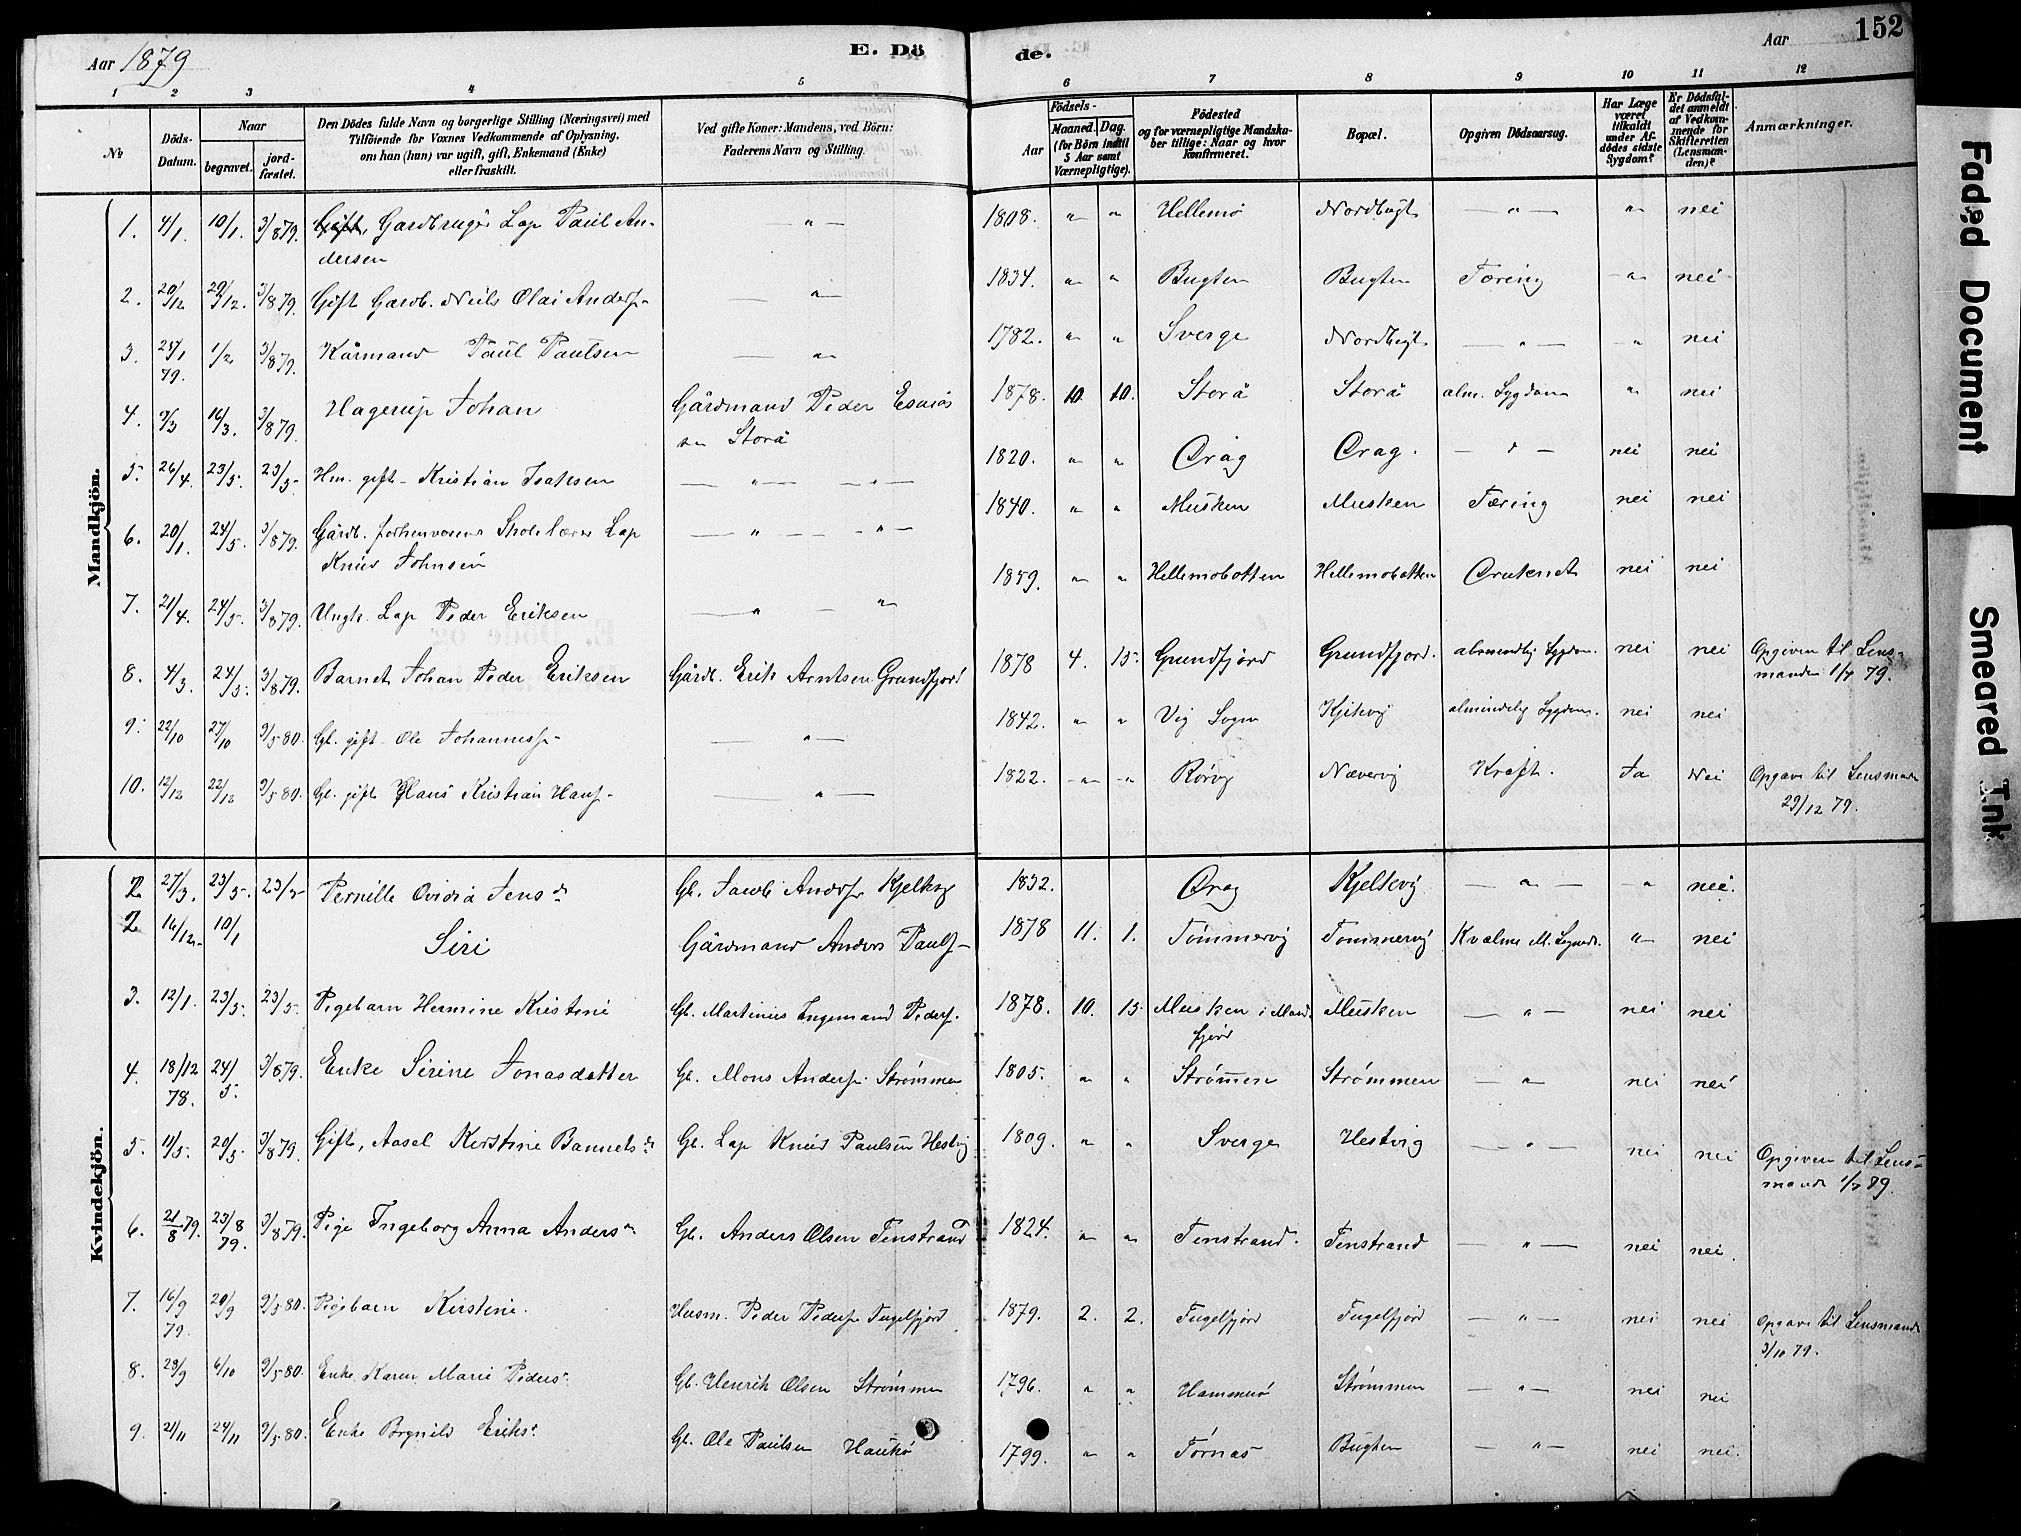 Aar 1879
E. Dö
de.
Aar
152
1 2 3 4 5 6 7 8 9 10 11 12
No
Döds-Datum.
Naar
begravet.
jord-fæstet.
Den Dödes fulde Navn og borgerlige Stilling (Næringsvei) med
Tilföiende for Voxnes Vedkommende af Oplysning,
om han (hun) var ugift, gift, Enkemand (Enke)
eller fraskilt.
Ved gifte Koner: Mandens, ved Börn:
Faderens Navn og Stilling.
Födsels-
Aar
Maaned. Dag.
(for Börn indtil
5 Aar samt
Værnepligtige).
Födested
og for værnepligtige Mandska-
ber tillige: Naar og hvor
konfirmeret.
Bopæl.
Opgiven Dödsaarsag.
Har Læge
været
tilkaldt
under Af-
dödes sidste
Sygdom?
Er Dödsfal-
det anmeldt
af Vedkom-
mende for
Skifteretten
(Lensman-
den)?
Anmærkninger.
Mandkjön.
1. 4/1. 10/1. 3/879. Gift, Gardbruger Lap Paul An- — " — 1808. " " Hellemo Nordbugt — " — " nei
dersen
2. 20/12 29/12. 3/879. Gift Gardb. Neils Olai Anders- — " 1834. " " Bugten Bugten Tæring " nei
3. 1/2 3/879. Kårmand Paul Paulsen — " 1782. " " Sverge Nordbugt — " — " nei
79.
4. 9/3 16/3. 3/879. Hagerup Johan Gårdmand Peder Esaias 1878. 10. 10. Storå Storå alm. Sygdom " nei
sen Storå
5. 26/4. 23/5. 23/5. Hm. gift - Kristian Isaksen — " — — " — 1820. " " Drag Drag. — " — nei nei
6. 20/1. 24/5. 3/879. Gårdb. forhenværene Skolelærer Lap — " — — " — 1840. " " Musken Musken Tæring nei nei
Knud Johnsen
7. 21/4. 24/5. 3/879. Ungk. Lap Peder Eriksen — " — " 1859. " " Hellemobotten Hellemobotten Druknet nei nei
8. 4/3. 24/5. 3/879. Barnet Johan Peder Eriksen Gårdb. Erik Arntsen Grundfjord 1878 4. 15. Grundfjord Grundfjord. almindlig Sygdom. nei nei Opgiven til Lens-
manden 1/7 79.
9. 22/10 27/10 9/5 80. Gb. gift - Ole Johannes- — " — 1842. " " Vig Sogn almindelig Sygdom. nei nei
10. 12/12 22/12 9/5 80. Gb. gift Hans Kristian Hans- — " — 1822. " " Rørvig Nævervig Kræft. Ja Nei Opgave til Lensmanden
29/12 79.
Kvindekjön.
2 27/3. 23/5. 23/5 Pernille Ovidia Jensdr Gb. Jacob Anders Kjelkvig 1832. Drag Kjelkvig — " — " nei.
2 16/12. 10/1 Siri Gårdmand Anders Pauls- 1878 11. 1. Tømmervig Tømmervig " nei
3. 12/1. 23/5. 23/5. Pigebarn Hermine Kristine Gb. Martinus Ingemand Peders. 1878. 10. 15. Musken i Mand- Musken — " — nei nei
fjord
4. 18/12 24/5. 3/879. Enke Sirine Jonasdatter Gb. Mons Anders. Strømmen 1805. " " Strømmen Strømmen — " nei nei
78.
5. 11/5. 20/5. 3/879. Gift, Aasel Kerstine Bannetsdr Gb. Lap Knud Paulsen Hestvig 1809. " " Sverge Hestvig — " nei nei Opgiven til Lens-
mand 1/7 79.
6. 21/8 79. 23/8 79. 3/879. Pige Ingeborg Anna Andersdr Gb. Anders Olsen Finstrand 1824. " " Finstrand. Finstrand — " — nei nei.
7. 16/9 20/9 9/5 80. Pigebarn Kerstine. Husm. Peder Peders. Fugelfjord 1879. 2. 2. Fugelfjord Fugelfjord — " — nei nei Opgave til Lensmand
79. 3/10 79.
8. 28/9 6/10 9/5 80. Enke Karen Marie Pedersdr Gb. Henrik Olsen Strømmen 1796. " " Hammerø Strømmen — " — nei nei
9. 21/11 24/11 9/5 80. Enke Brynild Eriksdr Gb. Ole Paulsen Haukø 1799. " " Tørnæs Bugten — " — nei nei.
Faded Document
Smeared Ink